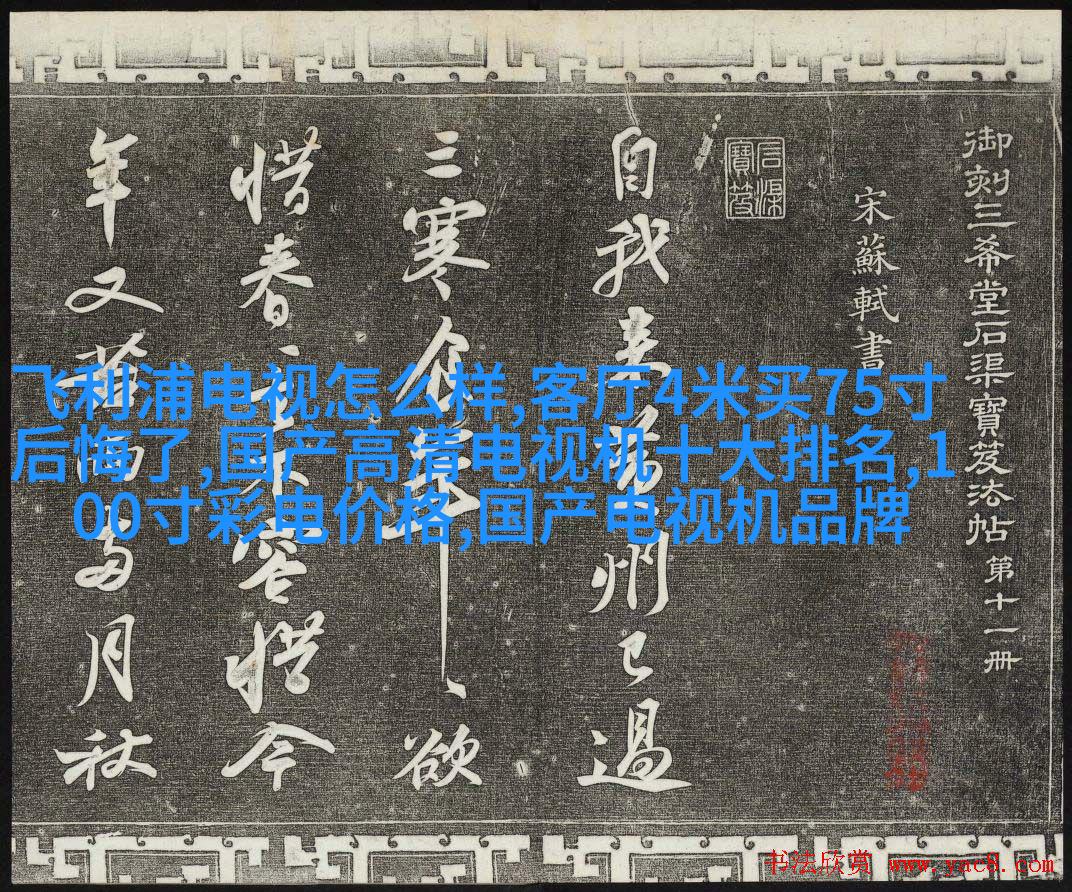 飞利浦电视怎么样,客厅4米买75寸
后悔了,国产高清电视机十大排名,1
00寸彩电价格,国产电视机品牌
御刻三希堂石渠寶笈法帖 第十一册
宋蘇軾書
石渠寶笈
自我來黄州已過
三寒食年、欲
惜春、去不容惜今
年又苦雨兩月秋
书法欣赏 www.yac8.com